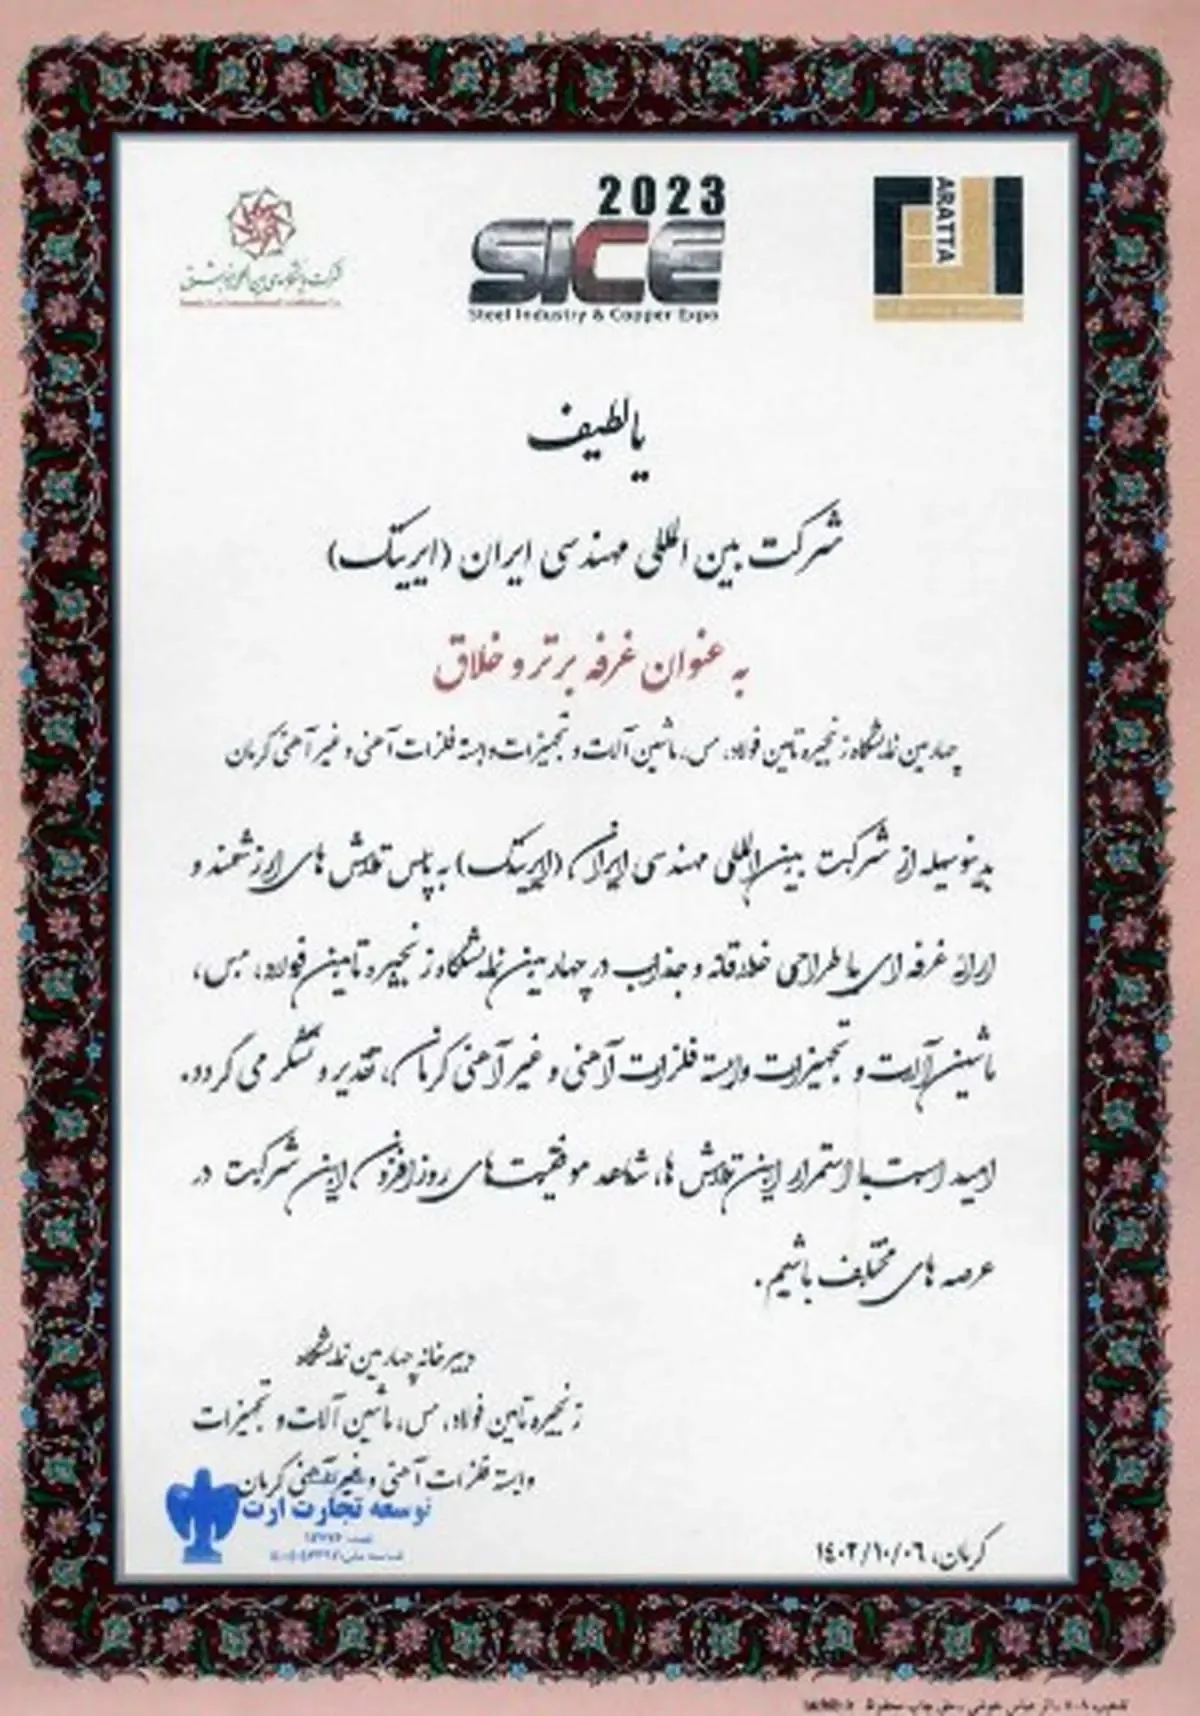 2023
SICE
Steel Industry & Copper Expo
ARATTA
یا لطیف
شرکت بین المللی مهندسی ایران (ایریتک)
به عنوان غرفه برتر و خلاق
چهارمین نمایشگاه زنجیره تامین فولاد، مس، ماشین آلات و تجهیزات وابسته فلزات آهنی و غیر آهنی کرمان
بدینوسیله از شرکت بین المللی مهندسی ایران (ایریتک) به پاس تلاش های ارزشمند و
ارائه غرفه ای با طراحی خلاقانه و جذاب در چهارمین نمایشگاه زنجیره تامین فولاد، مس،
ماشین آلات و تجهیزات وابسته فلزات آهنی و غیر آهنی کرمان، تقدیر و تشکر می گردد.
امید است با استمرار این تلاش ها، شاهد موفقیت های روزافزون این شرکت در
عرصه های مختلف باشیم.
دبیرخانه چهارمین نمایشگاه
زنجیره تامین فولاد، مس، ماشین آلات و تجهیزات
وابسته فلزات آهنی و غیر آهنی کرمان
توسعه تجارت ارت
کرمان، ۱۴۰۲/۱۰/۰۶